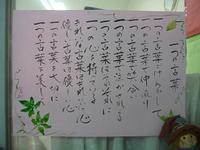 一つの言葉
一つの言葉でけんかして
一つの言葉で仲直り
一つの言葉で頭が下がり
一つの言葉で泣かされる
一つの言葉はそれぞれに
一つの心を持っている
きれいな言葉はきれいな心
優しい言葉は優しい心
一つの言葉を大切に
一つの言葉を美しく